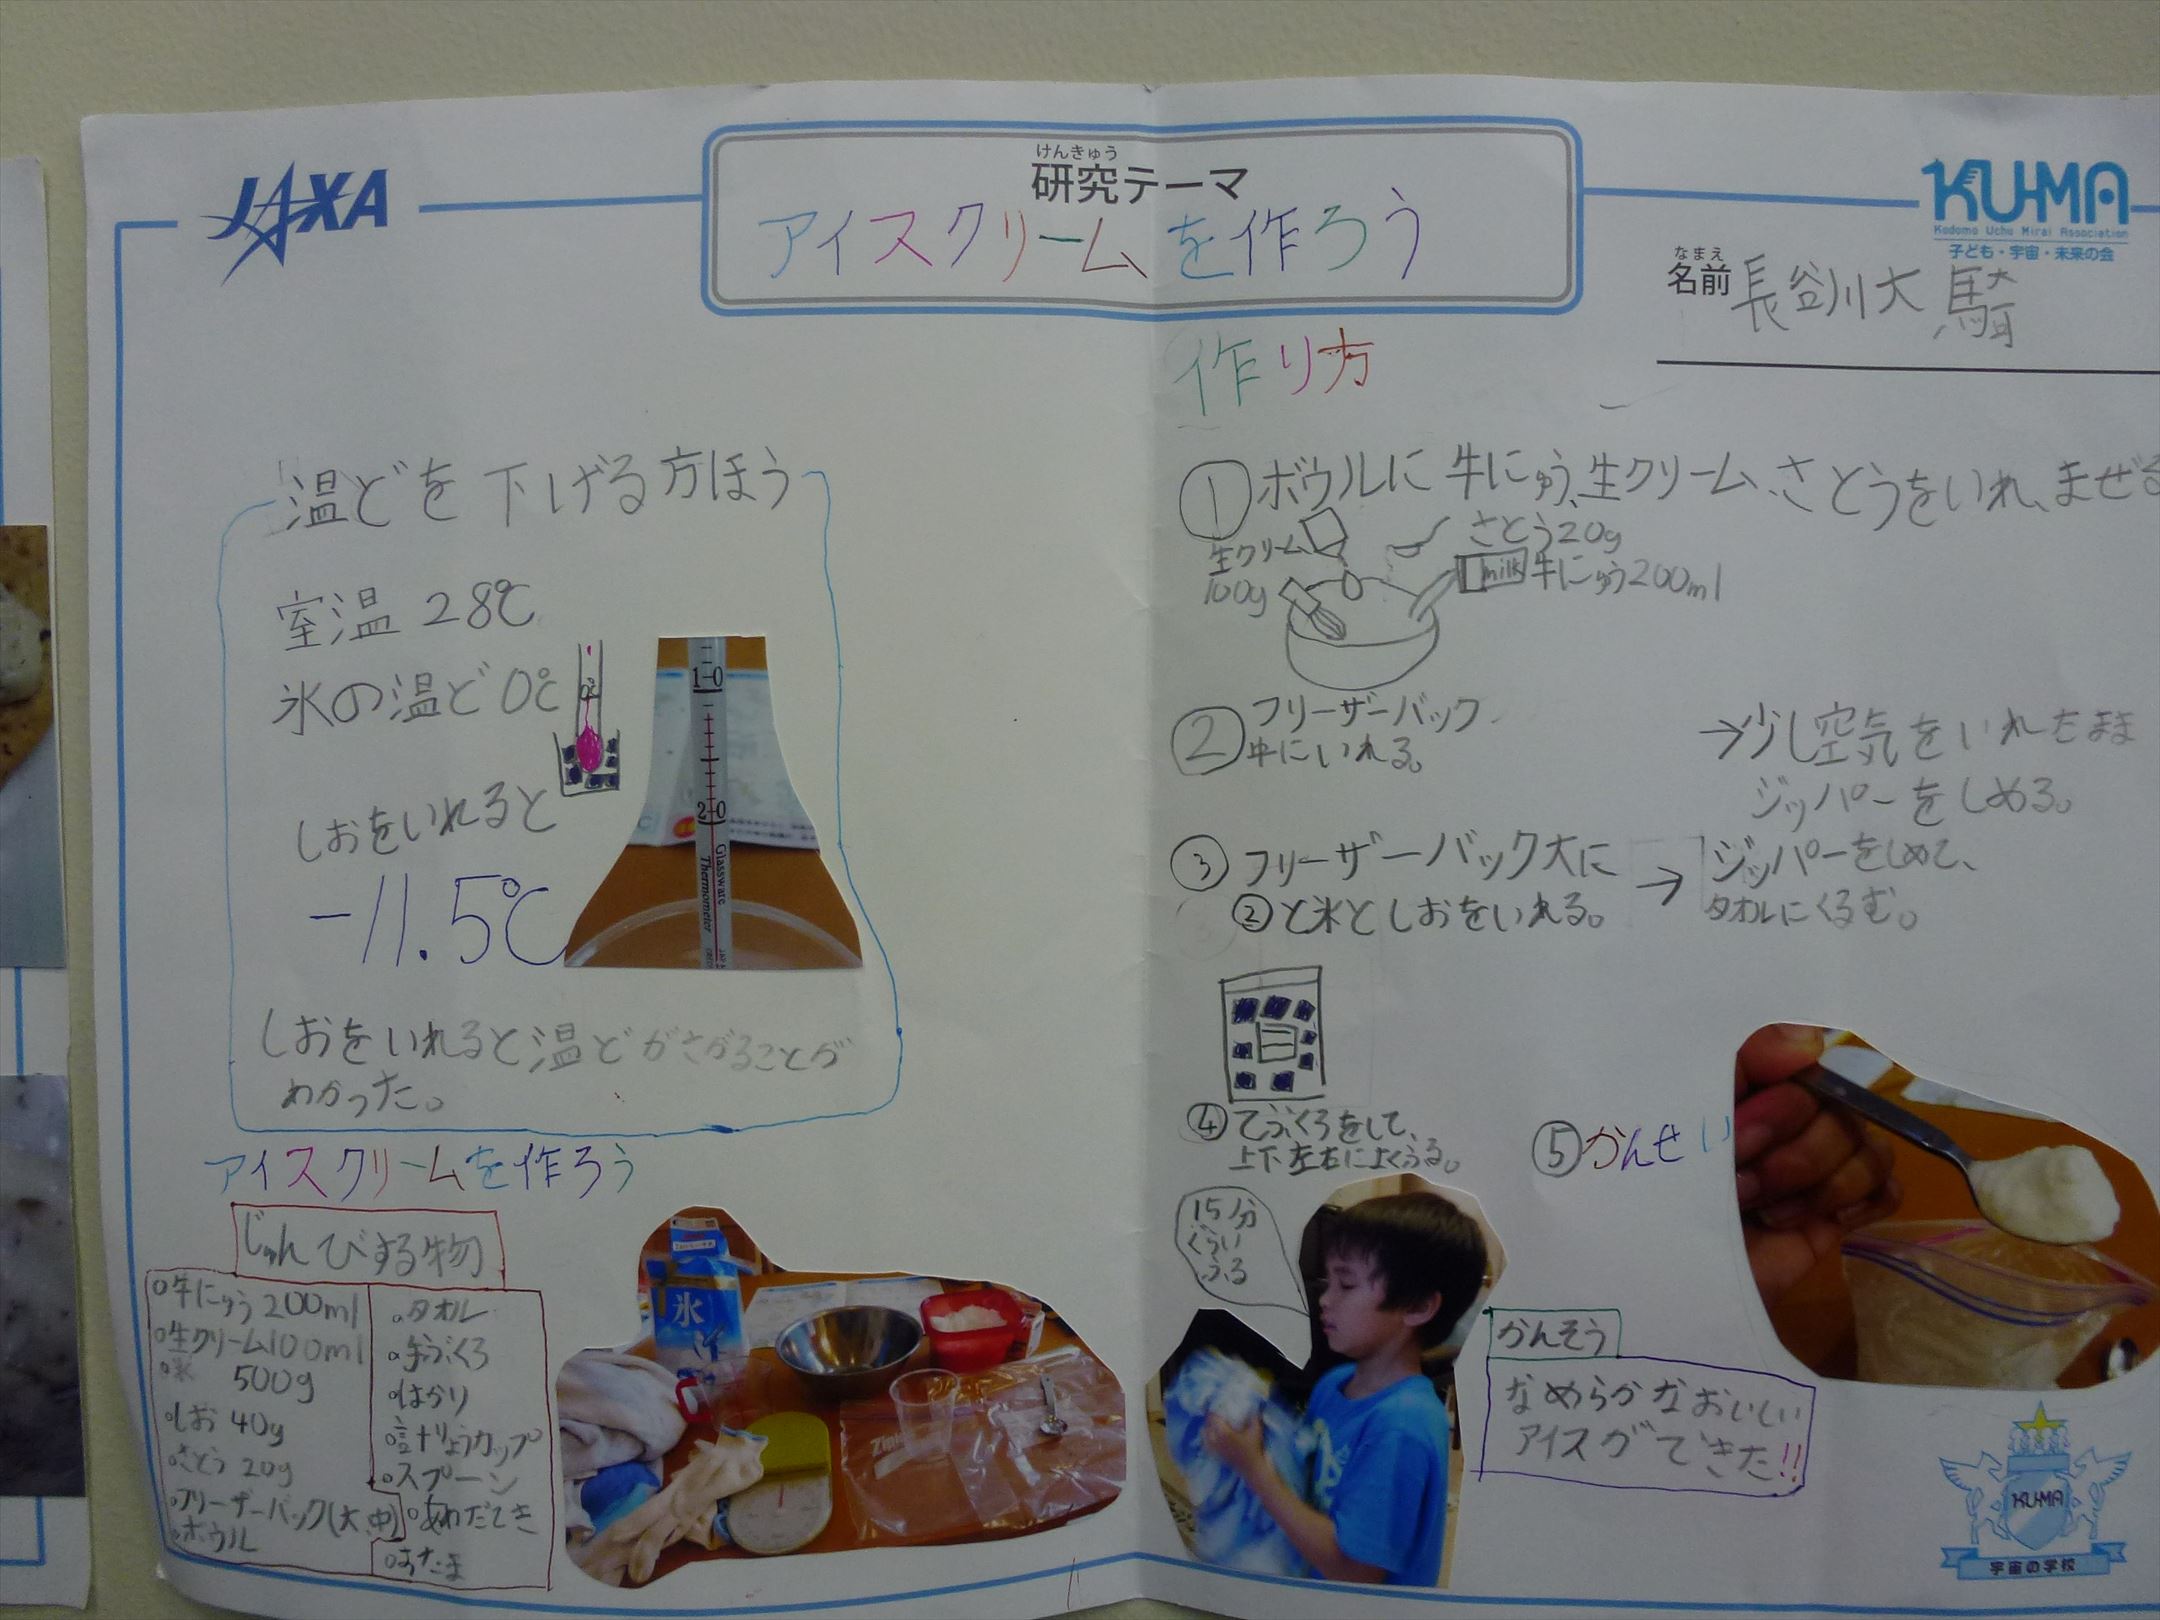 JAXA
けんきゅう
研究テーマ
アイスクリームを作ろう
KU-MA
Kodomo Uchu Mirai Association
子ども・宇宙・未来の会
なまえ
名前 長谷川大騎
温どを下げる方ほう
室温 28℃
氷の温ど0℃
0℃
しおをいれると
-11.5℃
1-0
2-0
Glassware
Thermometer
しおをいれると温どがさがることが
わかった。
アイスクリームを作ろう
じゅんびする物
牛にゅう 200ml
生クリーム100ml
氷 500g
しお 40g
さとう 20g
フリーザーバック(大,中)
ボウル
タオル
手ぶくろ
はかり
計りょうカップ
スプーン
あわだてき
おたま
氷
作り方
① ボウルに牛にゅう、生クリーム、さとうをいれ、まぜる
生クリーム
100g
さとう20g
milk 牛にゅう200ml
② フリーザーバック
中にいれる。
→少し空気をいれたまま
ジッパーをしめる。
③ フリーザーバック大に
②と氷としおをいれる。
→ ジッパーをしめて、
タオルにくるむ。
④ てぶくろをして、
上下左右によくふる。
15分
ぐらい
ふる
⑤かんせい
かんそう
なめらかなおいしい
アイスができた!!
KU-MA
宇宙の学校